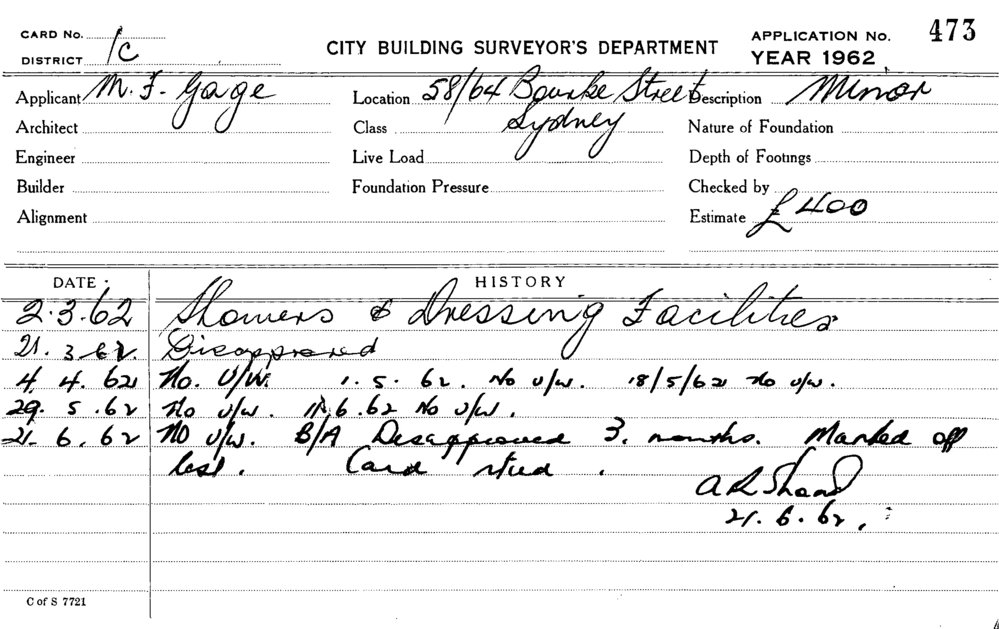 CARD No. 1c
DISTRICT
CITY BUILDING SURVEYOR'S DEPARTMENT
APPLICATION No. 473
YEAR 1962
Applicant M. F. Gage Location 58/64 Bourke Street Description Minor
Architect Class Sydney Nature of Foundation
Engineer Live Load Depth of Footings
Builder Foundation Pressure Checked by
Alignment Estimate £400
DATE HISTORY
2.3.62 Showers & Dressing Facilities
21.3.62. Disapproved
4.4.62 No. U/W. 1.5.62. No U/W. 18/5/62 No U/W.
29.5.62 No U/W. 11.6.62 No U/W.
21.6.62 NO U/W. B/A Disapproved 3. months. Marked off
list. Card filed.
A R Shand
21.6.62.
C of S 7721